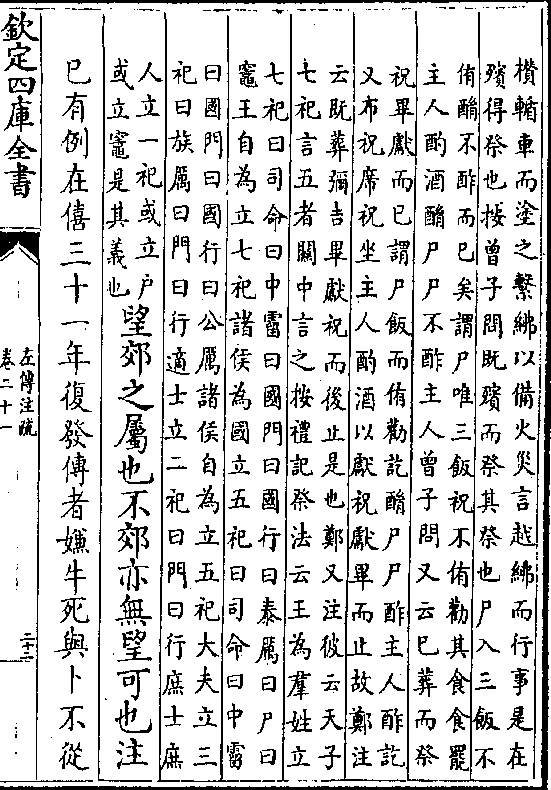 欑輴車而塗之繫紼以備火災言越紼而行事是在
殯得祭也按曾子問既殯而祭其祭也尸入三飯不
侑酳不酢而已矣謂尸唯三飯祝不侑勸其食食罷
主人酌酒酳尸尸不酢主人曾子問又云已葬而祭
祝畢獻而已謂尸飯而侑勸訖酳尸尸酢主人酢訖
又布祝席祝坐主人酌酒以獻祝獻畢而止故鄭注
云既葬彌吉畢獻祝而後止是也鄭又注彼云天子
七祀言五者關中言之按禮記祭法云王為羣姓立
七祀曰司命曰中霤曰國門曰國行曰泰厲曰户曰
竈王自為立七祀諸侯為國立五祀曰司命曰中霤
曰國門曰國行曰公厲諸侯自為立五祀大夫立三
祀曰族厲曰門曰行適士立二祀曰門曰行庶士庶
人立一祀或立户
或立竈是其義也
望郊之屬也不郊亦無望可也注
已有例在僖三十一年復發傳者嫌牛死與卜不從
欽定四庫全書
左傳注疏
卷二十一
二十二